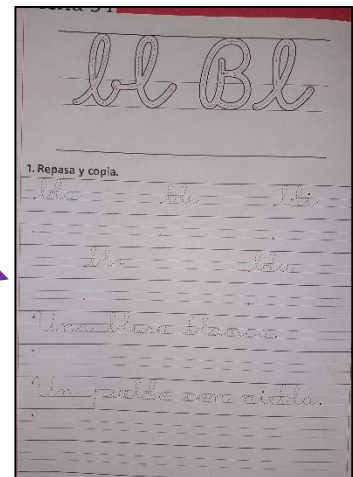 bl Bl
1. Repasa y copia.
bla ble bli
blo blu
Una blusa blanca.
Un pueblo con niebla.